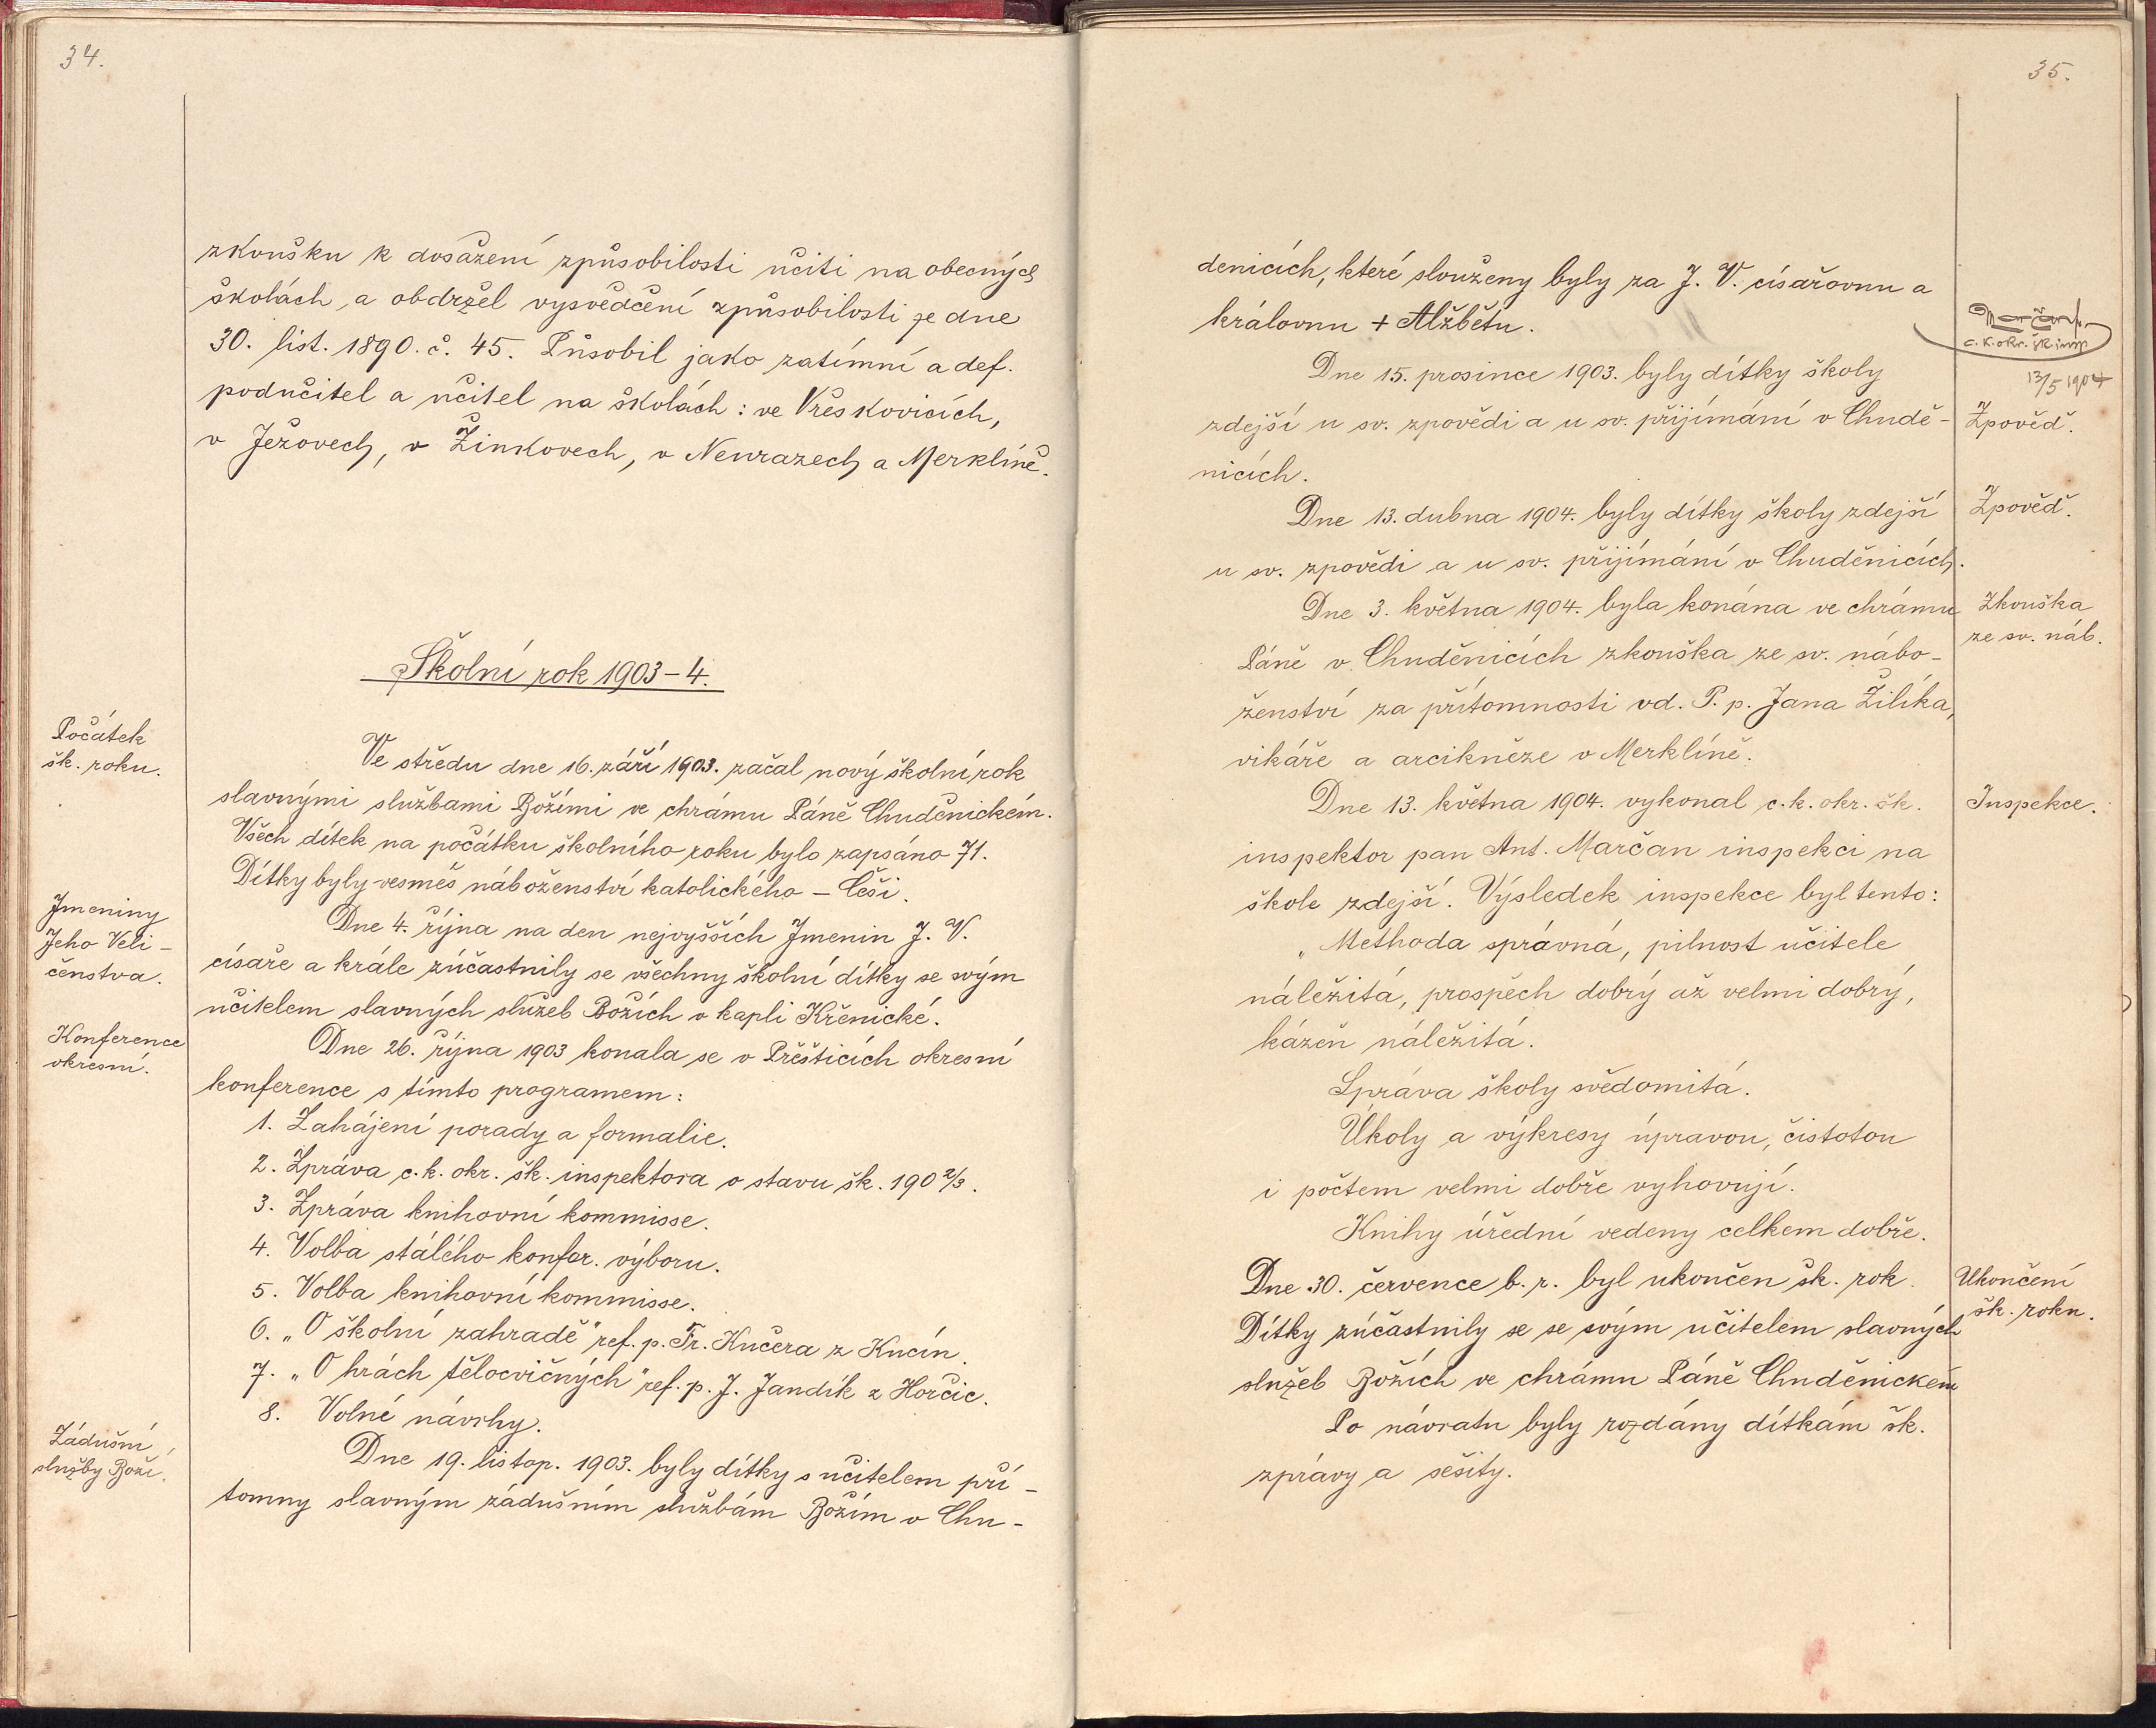 34.
zkoušku k dosažení způsobilosti učiti na obecných
školách a obdržel vysvědčení způsobilosti ze dne
30. list. 1890. č. 45. Působil jako zatímní a def.
podučitel a učitel na školách: ve Vřeskovicích,
v Ježovech, v Žinkovech, v Neurazech a Merklíně.
Školní rok 1903-4.
Počátek
šk. roku.
Ve středu dne 16. září 1903. začal nový školní rok
slavnými službami Božími ve chrámu Páně Chuděnickém.
Všech dítek na počátku školního roku bylo zapsáno 71.
Dítky byly vesměs náboženství katolického – Češi.
Jmeniny
Jeho Veli-
čenstva.
Dne 4. října na den nejvyšších Jmenin J. V.
císaře a krále zúčastnily se všechny školní dítky se svým
učitelem slavných služeb Božích v kapli Křenické.
Konference
okresní.
Dne 26. října 1903 konala se v Přešticích okresní
konference s tímto programem:
1. Zahájení porady a formalie.
2. Zpráva c. k. okr. šk. inspektora o stavu šk. 190 2/3.
3. Zpráva knihovní kommisse.
4. Volba stálého konfer. výboru.
5. Volba knihovní kommisse.
6. „O školní zahradě" ref. p. Fr. Kučera z Kucín.
7. „O hrách tělocvičných" ref. p. J. Jandík z Horčic.
8. Volné návrhy.
Zádušní
služby Boží.
Dne 19. listop. 1903. byly dítky s učitelem pří-
tomny slavným zádušním službám Božím v Chu-
35.
denicích, které slouženy byly za J. V. císařovnu a
královnu + Alžbětu.
Marčan
c. k. okr. šk. insp
13/5 1904
Dne 15. prosince 1903. byly dítky školy
zdejší u sv. zpovědi a u sv. přijímání v Chudě-
nicích.
Zpověď.
Dne 13. dubna 1904. byly dítky školy zdejší
u sv. zpovědi a u sv. přijímání v Chuděnicích.
Zpověď.
Dne 3. května 1904. byla konána ve chrámu
Páně v Chuděnicích zkouška ze sv. nábo-
ženství za přítomnosti vd. P. p. Jana Žilíka,
vikáře a arcikněze v Merklíně.
Zkouška
ze sv. náb.
Dne 13. května 1904. vykonal c. k. okr. šk.
inspektor pan Ant. Marčan inspekci na
škole zdejší. Výsledek inspekce byl tento:
Inspekce.
„Methoda správná, pilnost učitele
náležitá, prospěch dobrý až velmi dobrý,
kázeň náležitá.
Správa školy svědomitá.
Úkoly a výkresy úpravou, čistotou
i počtem velmi dobře vyhovují.
Knihy úřední vedeny celkem dobře.
Dne 30. července b. r. byl ukončen šk. rok.
Dítky zúčastnily se se svým učitelem slavných
služeb Božích ve chrámu Páně Chuděnickém
Ukončení
šk. roku.
Po návratu byly rozdány dítkám šk.
zprávy a sešity.